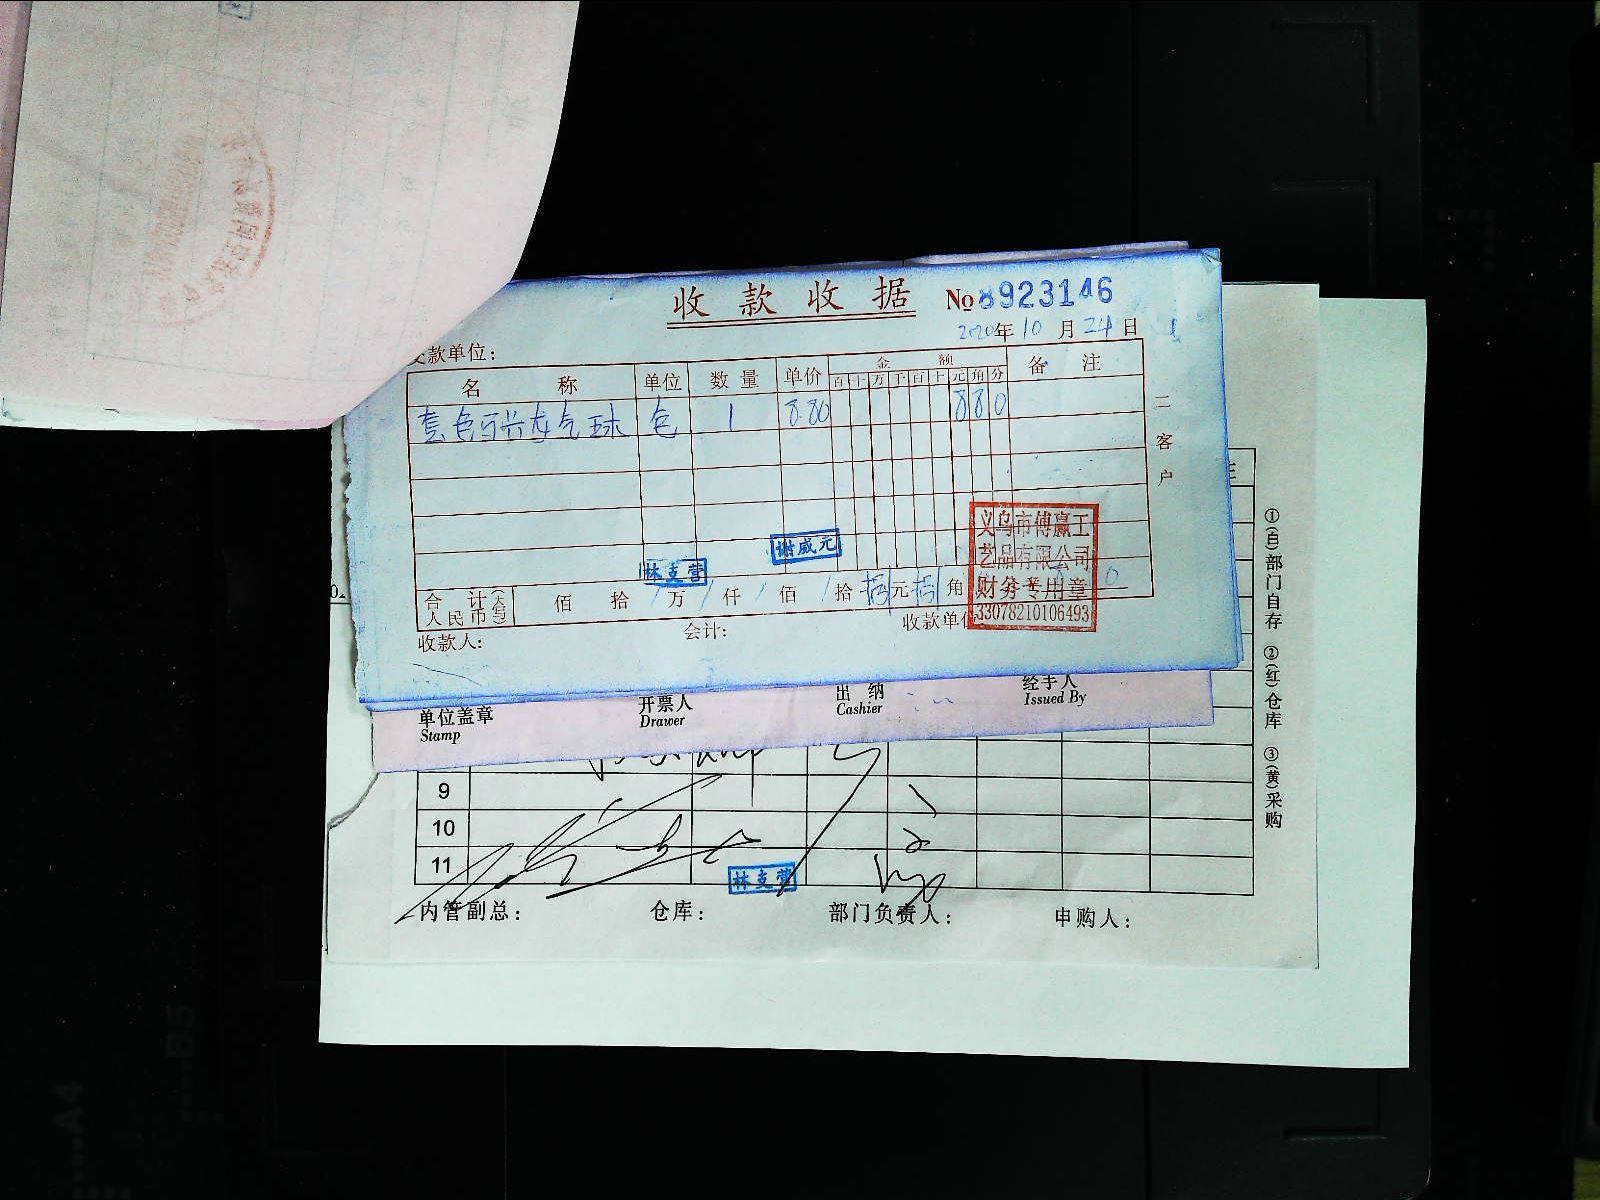 收款收据 №8923146
2020年10月24日
交款单位：
名称 单位 数量 单价 金额 备注
百十万千百十元角分
气球 包 1 8.80 880
二客户
谢威元
林支营
义乌市傅赢工
艺品有限公司
财务专用章
33078210106493
合计人民币(大写) 佰 拾 万 仟 佰 拾 捌元捌角
收款人： 会计： 收款单位
单位盖章 开票人 出纳 经手人
Stamp Drawer Cashier Issued By
9
10
11
林支营
内管副总： 仓库： 部门负责人： 申购人：
①(白)部门自存 ②(红)仓库 ③(黄)采购
B5
A4